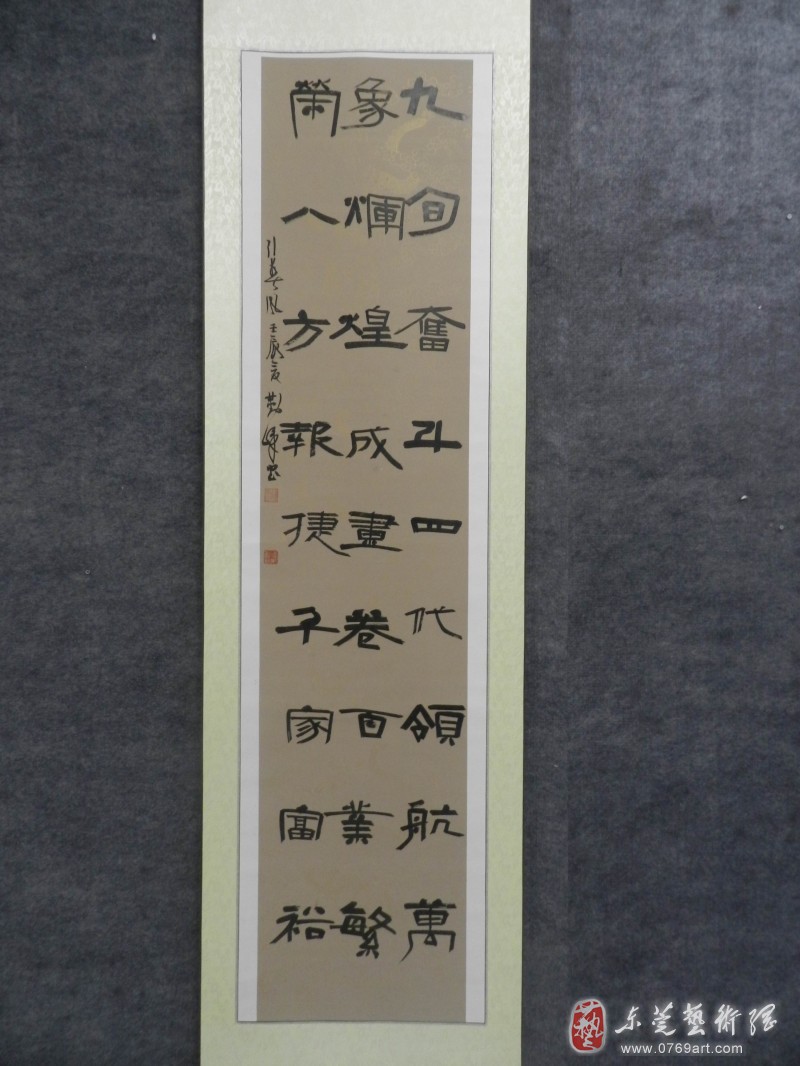 九旬奮斗四代領航萬
象煇煌成畫卷百業繁
榮八方報捷千家富裕
壬辰夏 書
东莞藝術網
www.0769art.com